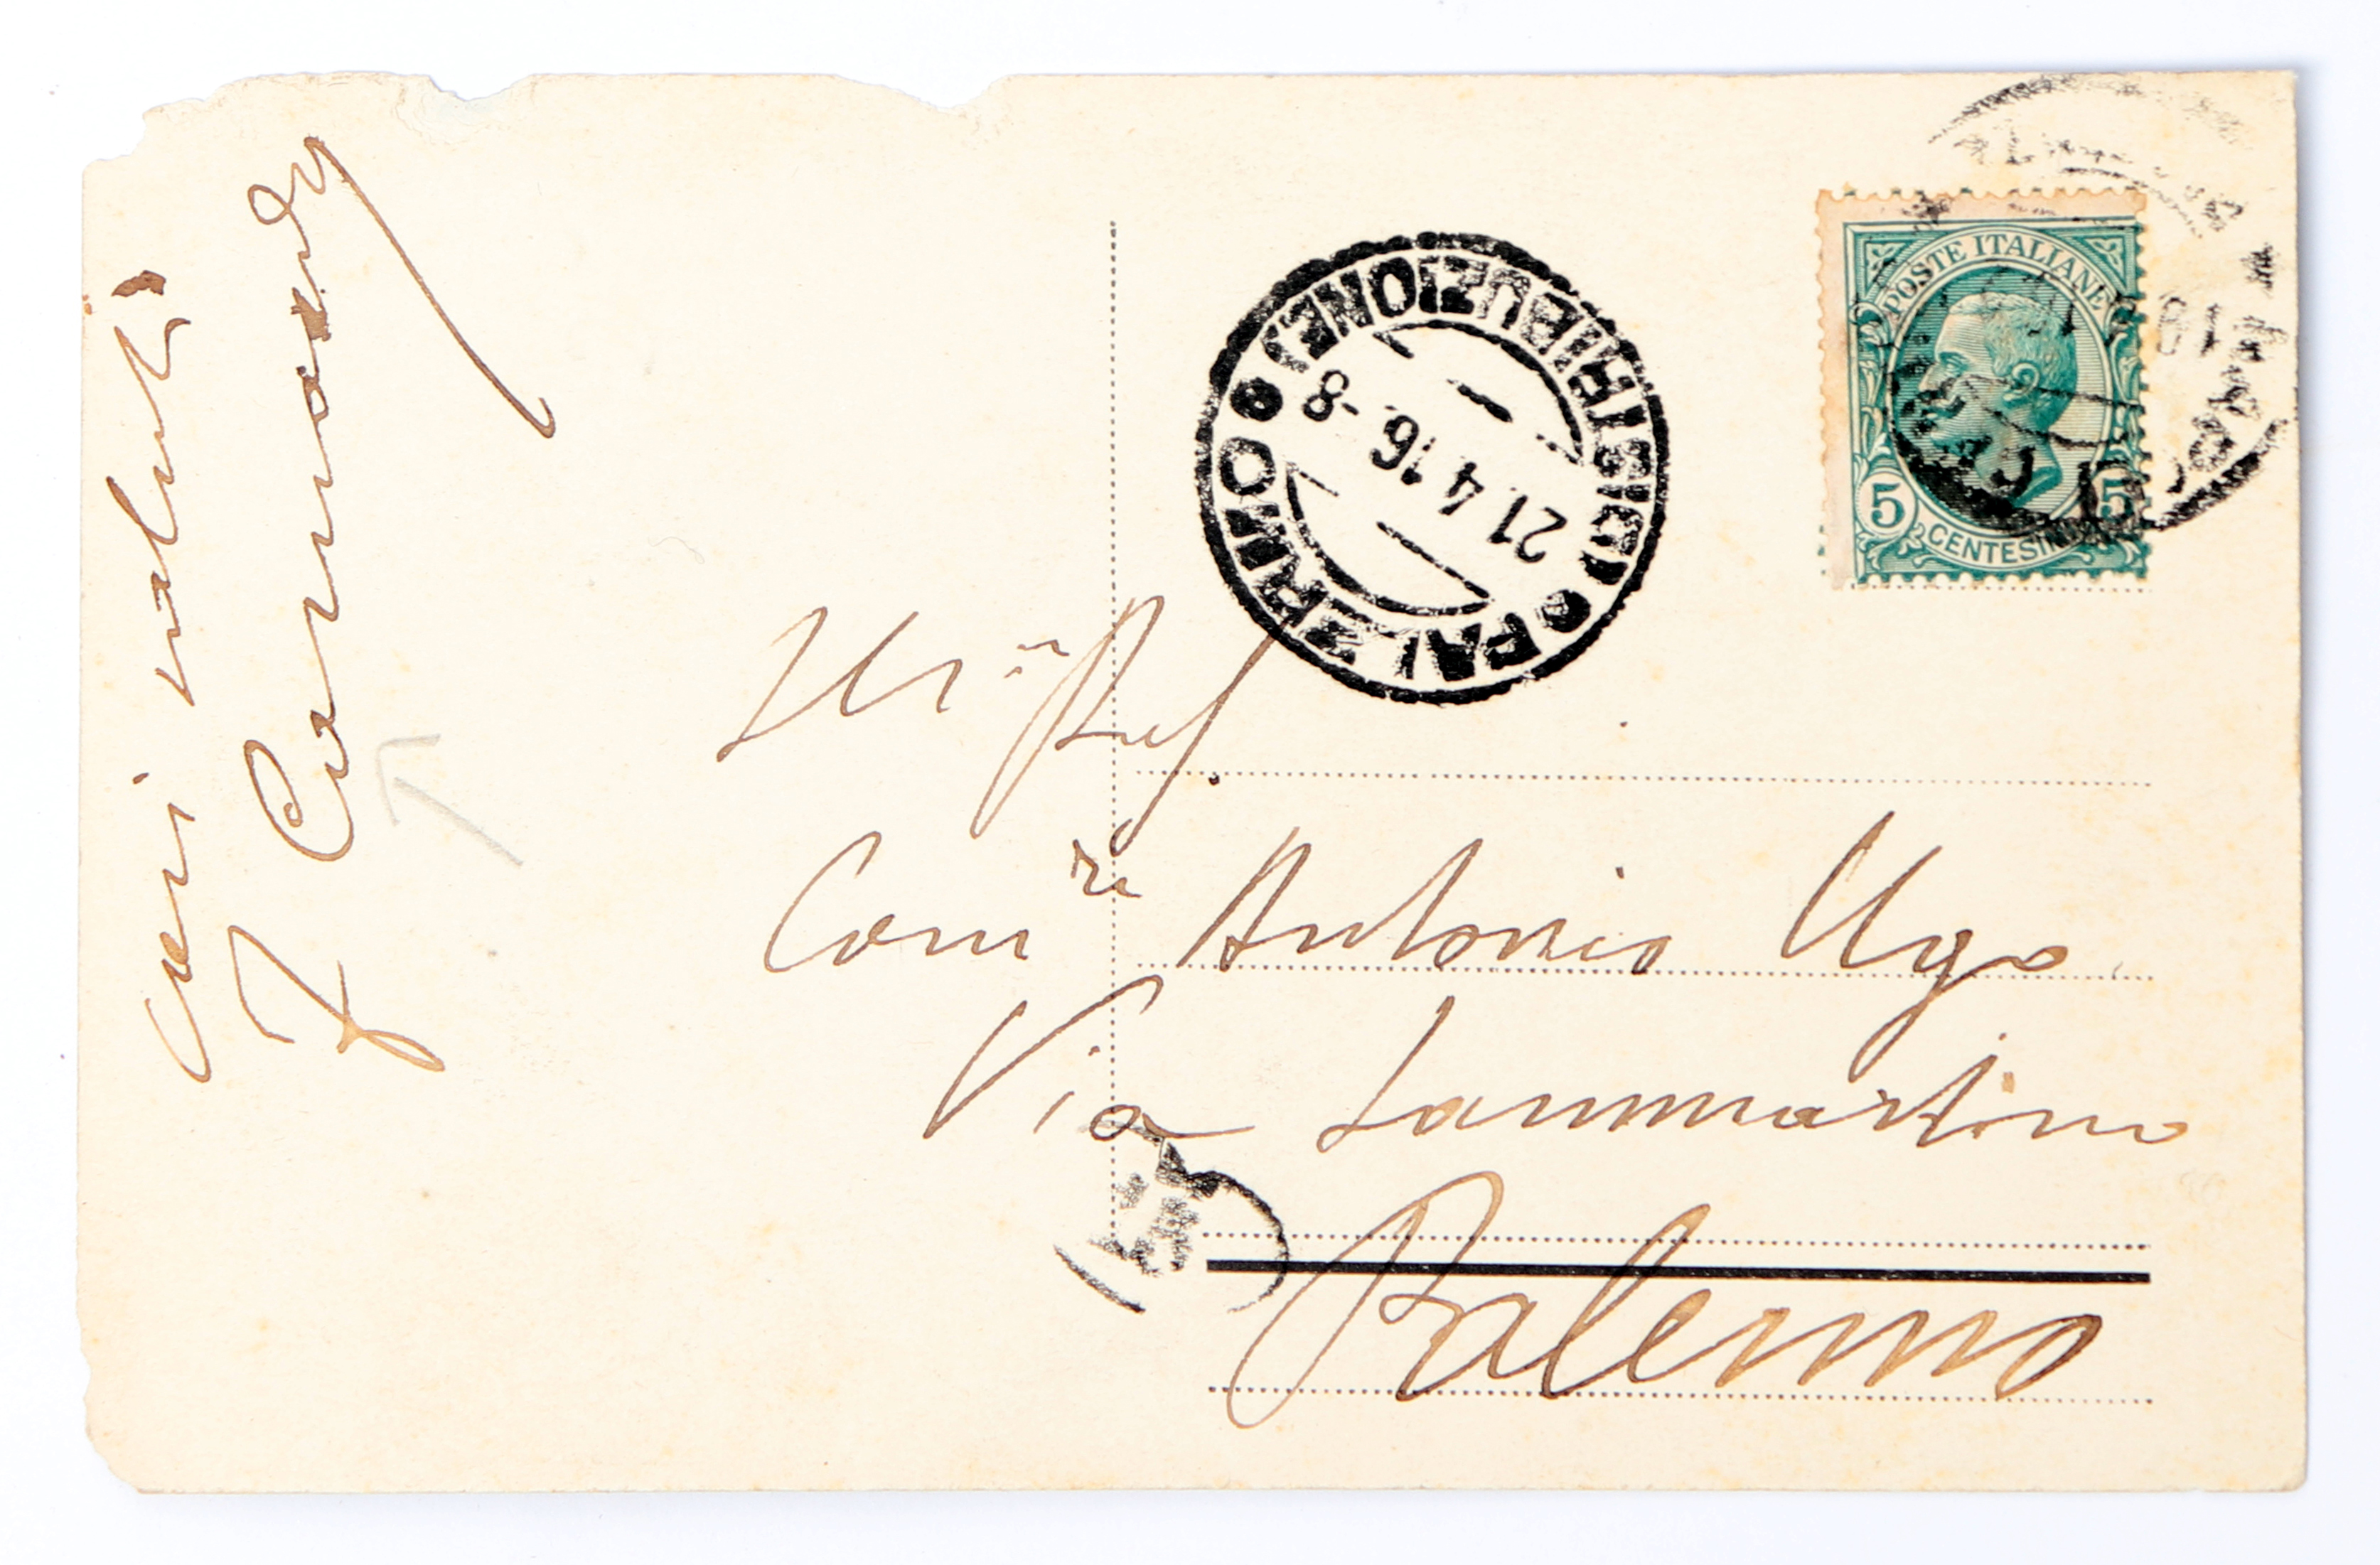 cari saluti
F Carnandy
Ill.mo Prof.
Com.re Antonio Ugo
Via Sammartino
Palermo
PALERMO
(DISTRIBUZIONE)
21.4.16.-8
POSTE ITALIANE
5 5
CENTESIMI